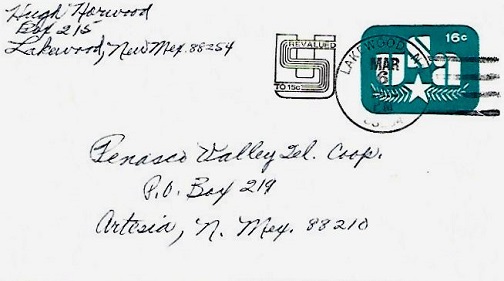 Hugh Horwood
Box 215
Lakewood, New Mex. 88254
REVALUED
TO 15c
16c
USA
LAKEWOOD, N
MAR
6
PM
Penasco Valley Tel. Coop.
P.O. Box 219
Artesia, N. Mex. 88210